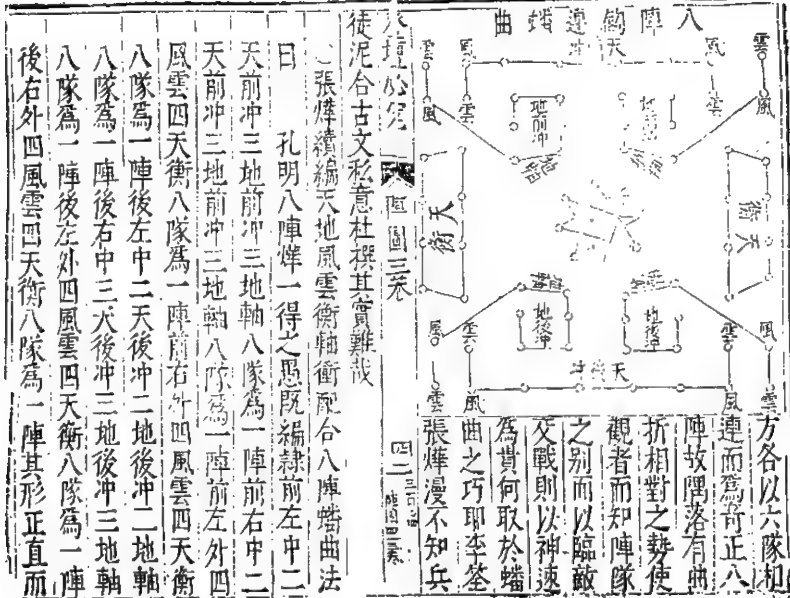 八陣鈎連蟠曲
雲
風
天
冲
風
雲
風
雲
雲
風
地前冲
天衡
天衡
地後冲
地後冲
風
雲
雲
風
天後冲
雲
風
風
雲
方各以六隊相
連而爲奇正八
陣故隅落有曲
折相對之勢使
觀者而知陣隊
之別而以臨敵
交戰則以神速
為貴何取於蟠
曲之巧耶李筌
張燁漫不知兵
圖三卷
四二
徒泥台古文私意杜撰其實難哉
張燁續編天地風雲衡軸衝配合八陣蟠曲法
曰 孔明八陣燁一得之愚既編隷前左中二
天前冲三地前冲三地軸八隊爲一陣前右中二
天前冲三地前冲三地軸八隊爲一陣前左外四
風雲四天衡八隊爲一陣前右外四風雲四天衡
八隊爲一陣後左中二天後冲二地後冲二地軸
八隊爲一陣後右中三天後冲三地後冲三地軸
八隊爲一陣後左外四風雲四天衡八隊爲一陣
後右外四風雲四天衡八隊爲一陣其形正直而